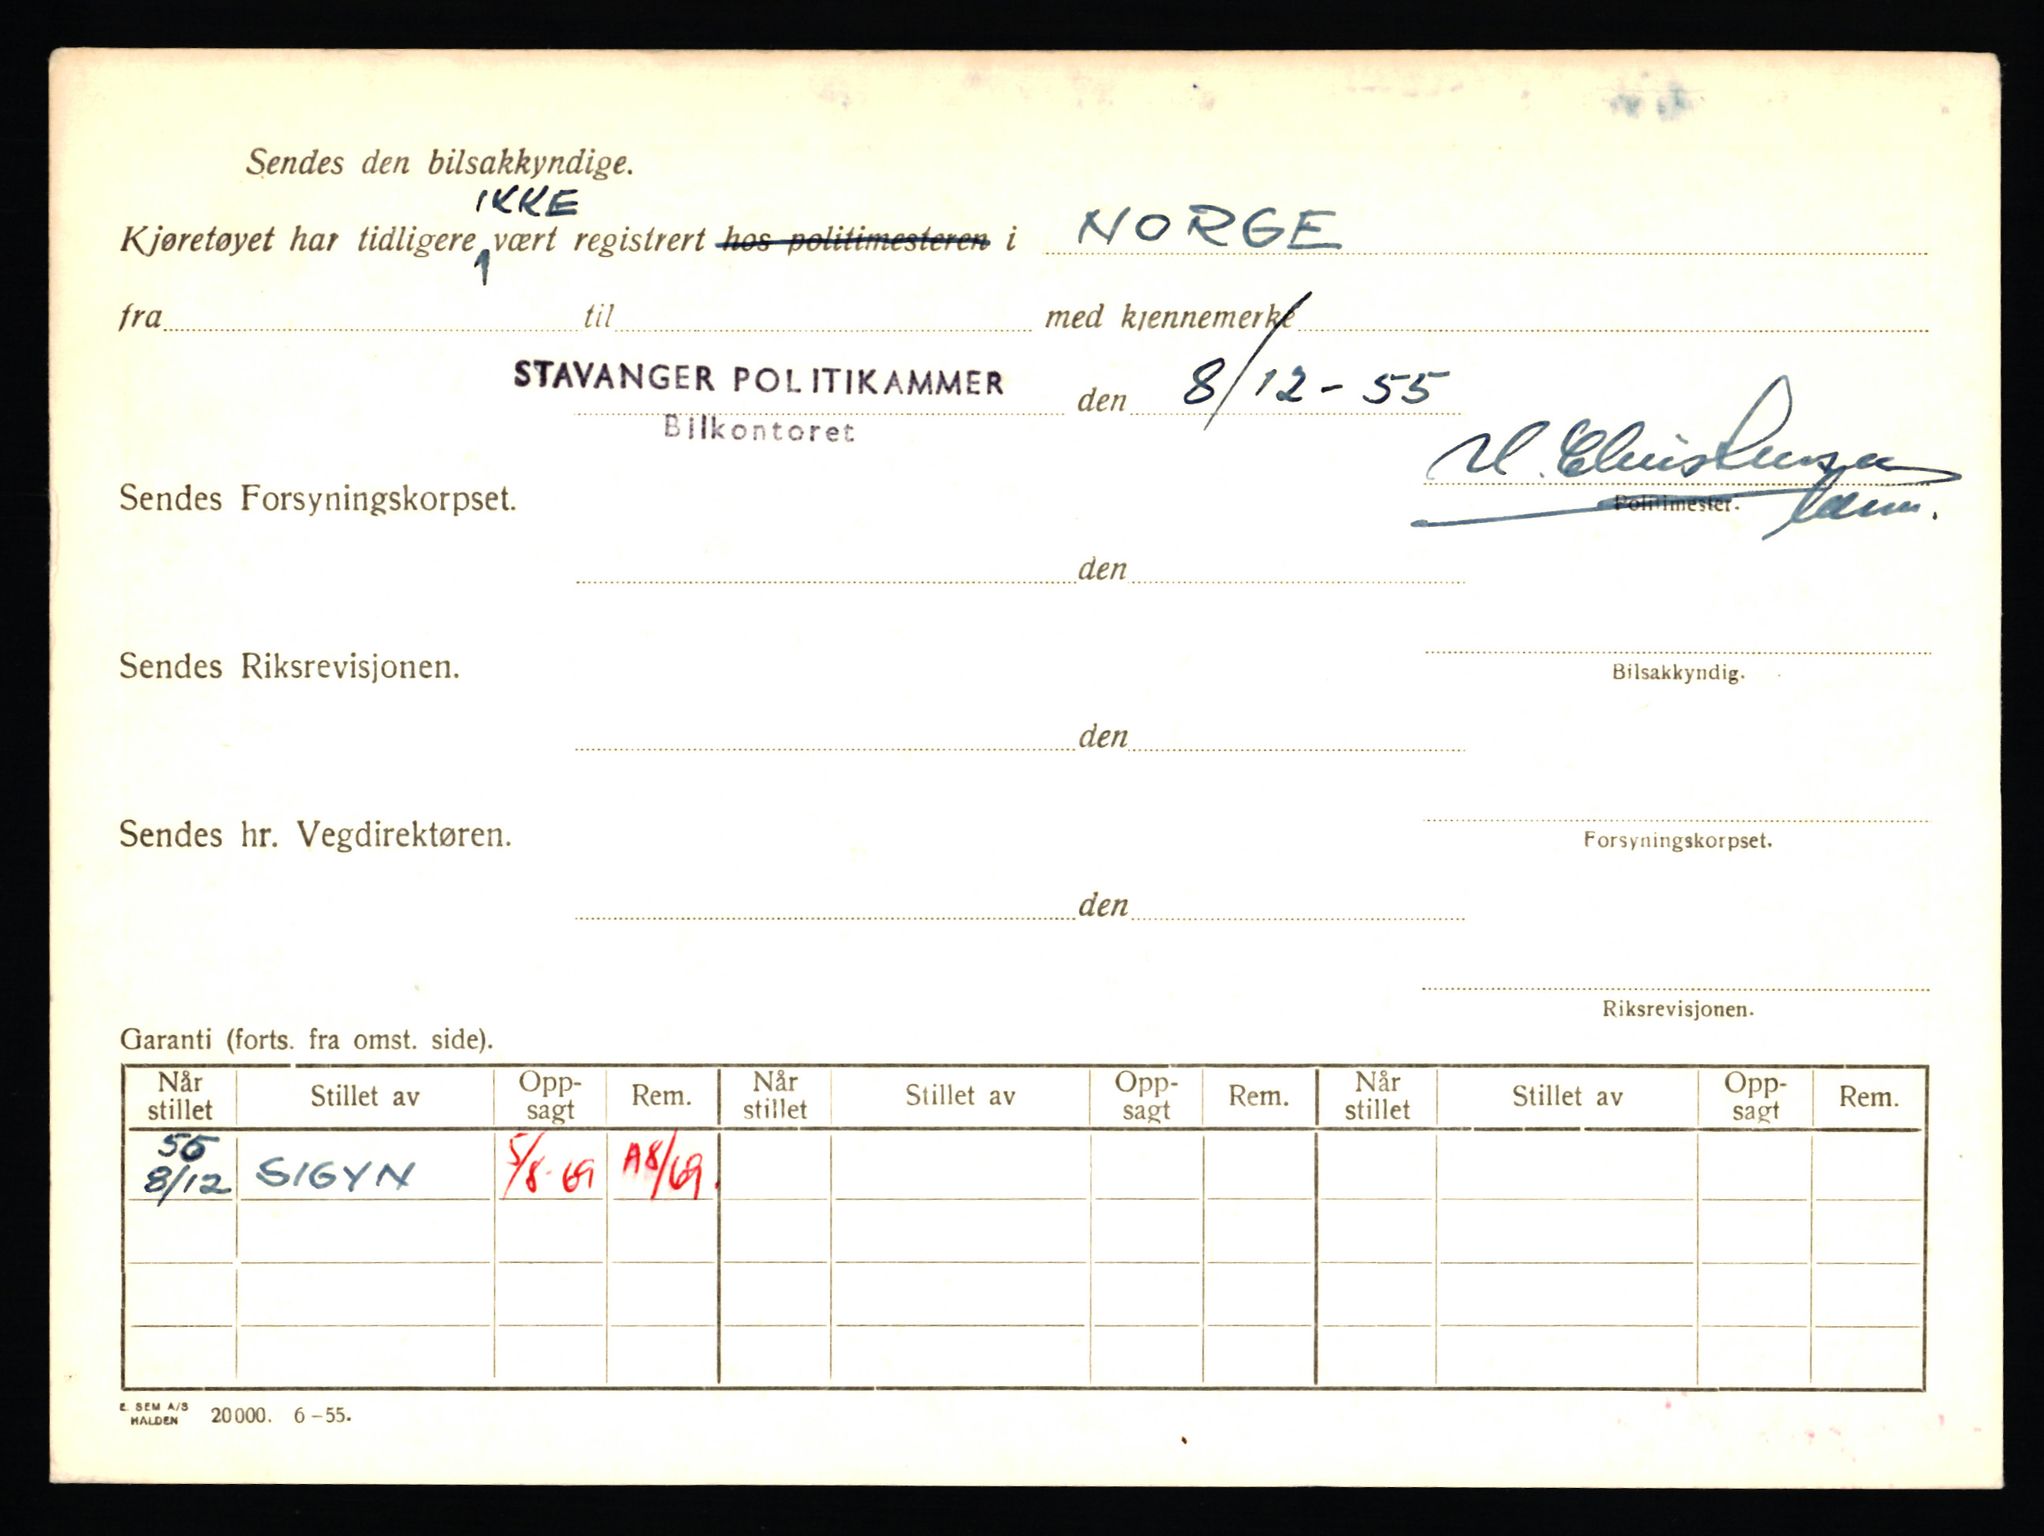 Sendes den bilsakkyndige.
IKKE
Kjøretøyet har tidligere vært registrert hos politimesteren i NORGE
fra til med kjennemerke
STAVANGER POLITIKAMMER den 8/12-55
Bilkontoret
Christensen
Sendes Forsyningskorpset. Politimester.
den
Sendes Riksrevisjonen. Bilsakkyndig.
den
Sendes hr. Vegdirektøren. Forsyningskorpset.
den
Riksrevisjonen.
Garanti (forts. fra omst. side).
Når stillet Stillet av Opp-sagt Rem. Når stillet Stillet av Opp-sagt Rem. Når stillet Stillet av Opp-sagt Rem.
55
8/12 SIGYN 5/8-69 A8/69.
E. SEM A/S
HALDEN 20000. 6-55.